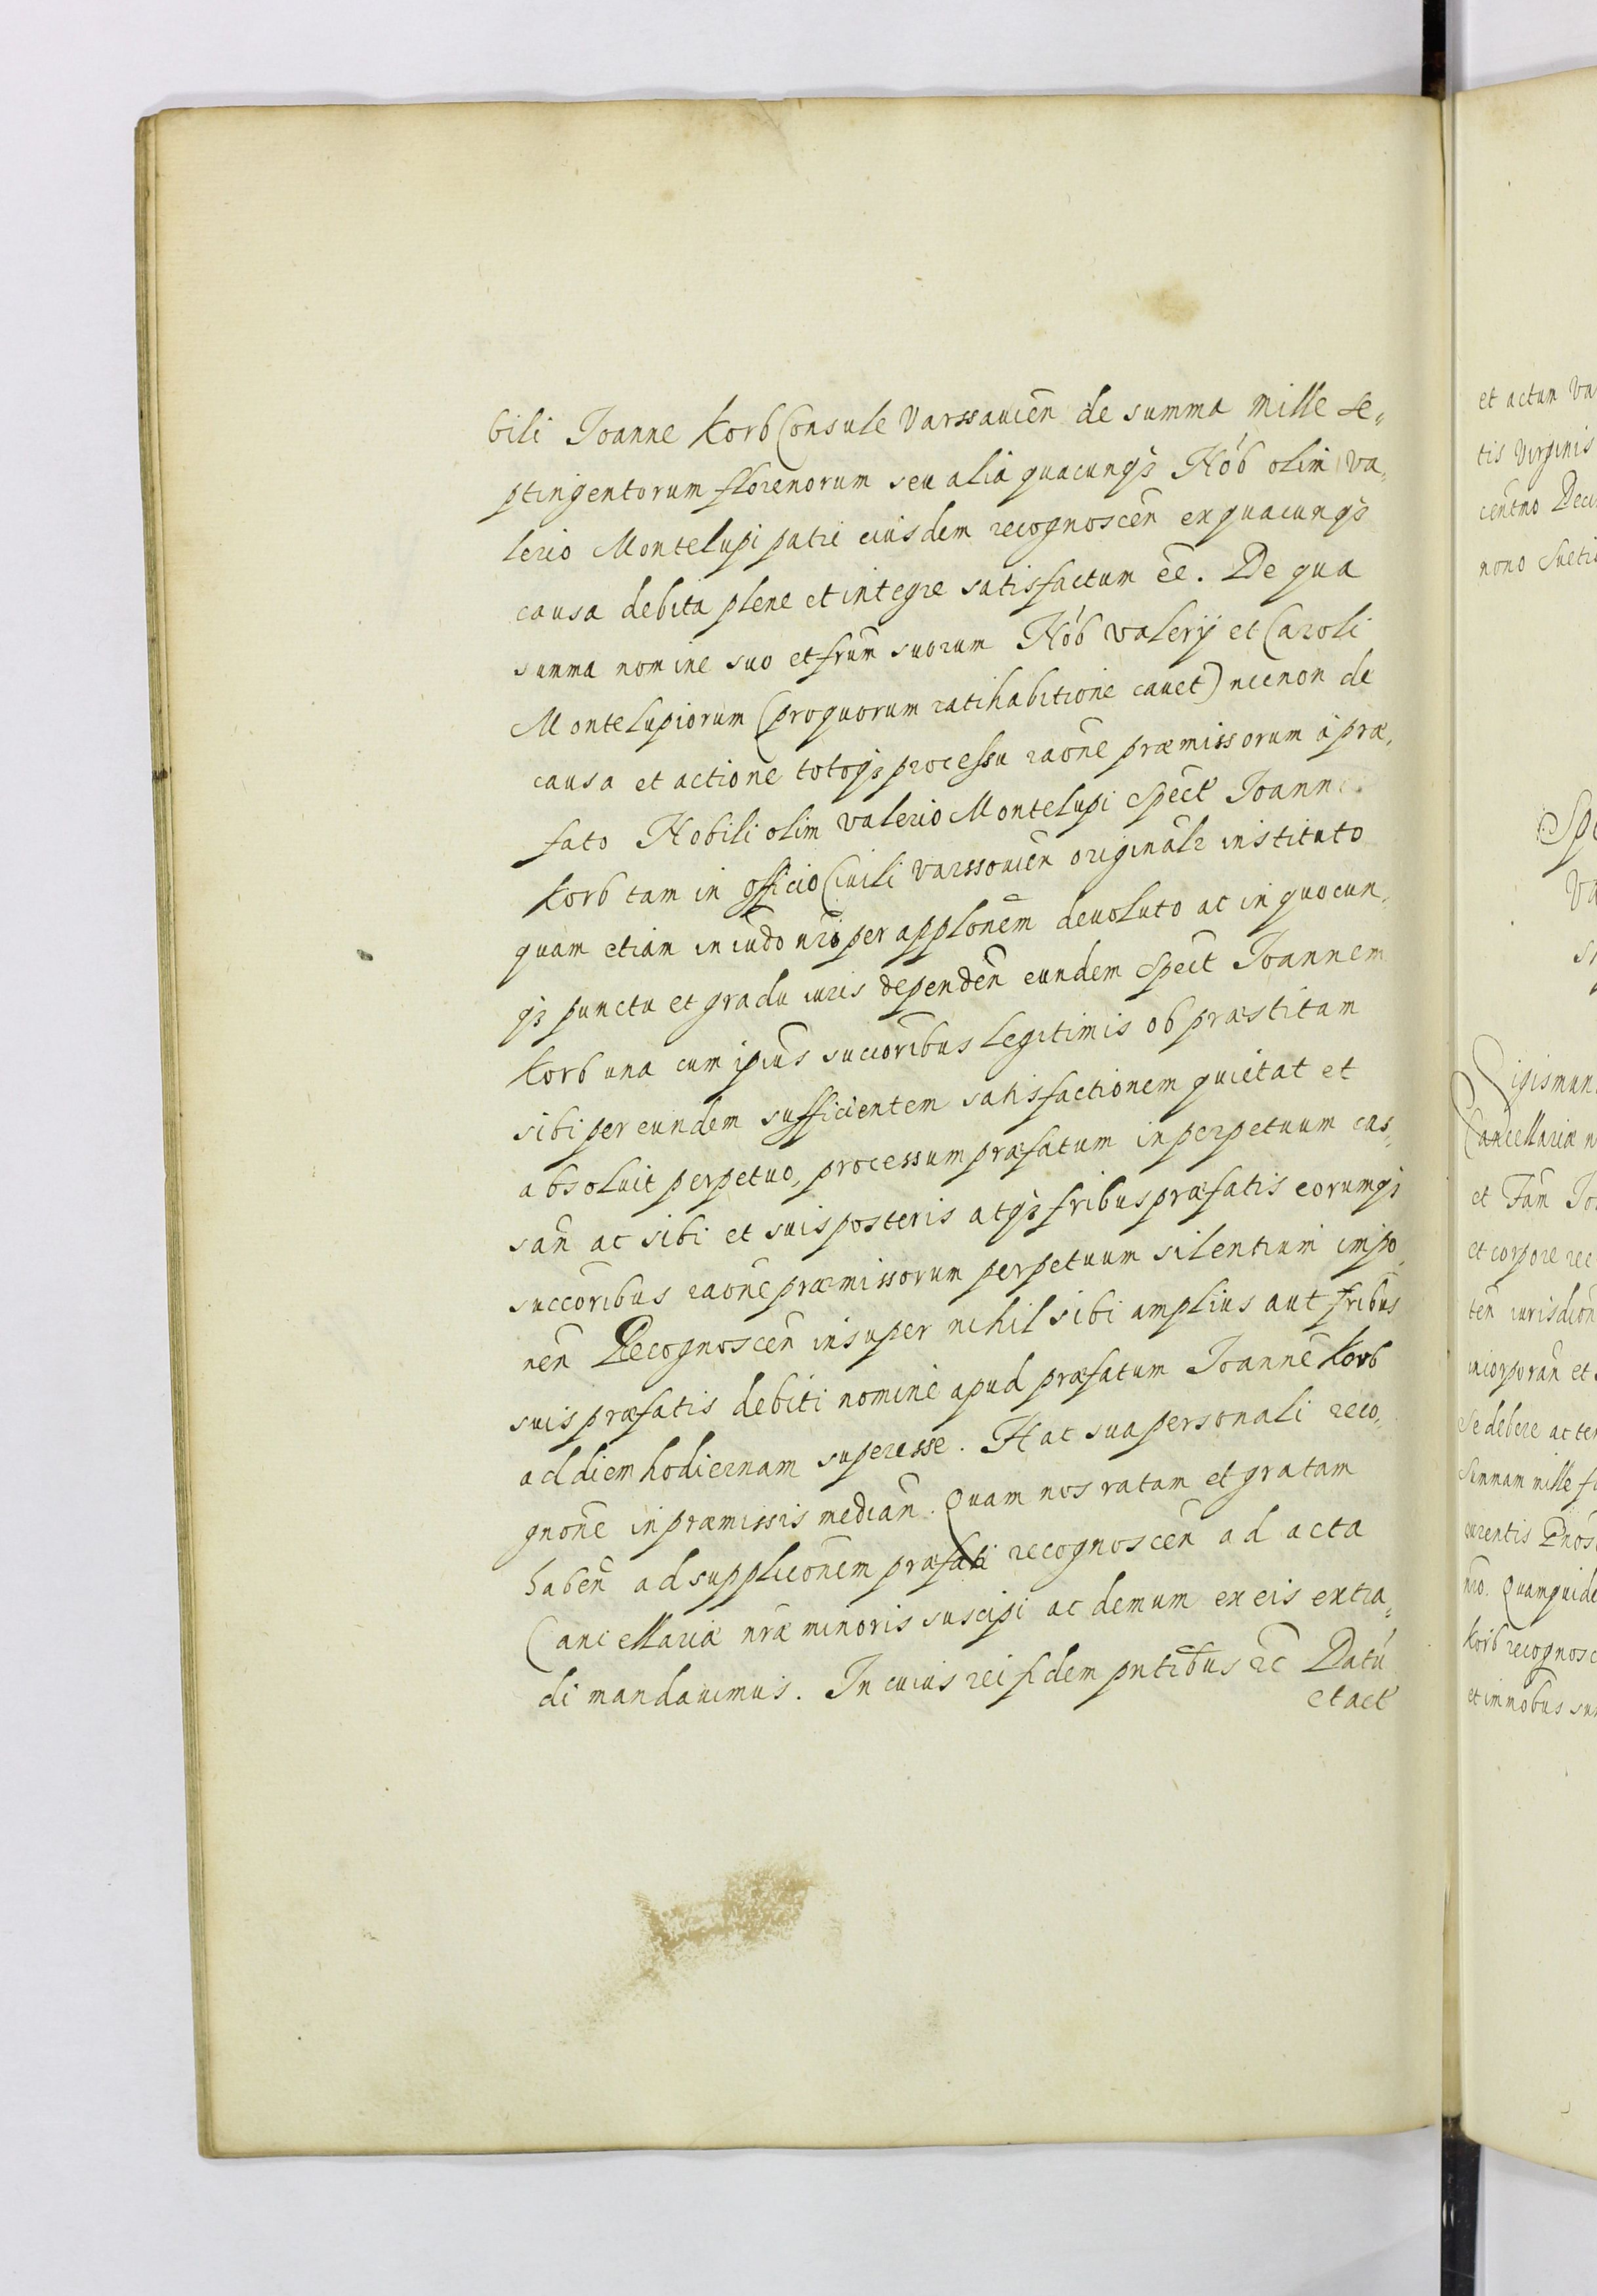 bili Joanne Korb Consule Varssauień de summa mille se„
ptingentorum florenorum seu alia quacunqȝ Nob olim Va„
lerio Montelupi patri eiusdem recognosceñ ex quacunqȝ
causa debita plene et integre satisfactum ēē. De qua
summa nomine suo et frūm suorum Nob Valerij et Caroli
Montelupiorum (pro quorum ratihabitione cauet) necnon de
causa et actione totoqȝ processu raōne præmissorum à præ„
fato Nobili olim Valerio Montelupi Spect Joann
Korb tam in officio Ciuili Varssouień originalr instituto
quam etiam in iudo nrō per applōnem deuoluto ac in quocun„
qȝ punctu et gradu iuris dependeñ eundem Spect Joannem
Korb una cum ipius succoribus legitimis ob præstitam
sibi per eundem sufficientem satisfactionem quietat et
absoluit perpetuo, processum præfatum in perpetuum cas„
sañ ac sibi et suis posteris atqȝ fribus præfatis eorumqȝ
succoribus raōne præmissorum perpetuum silentium impo„
neñ Recognosceñ insuper nihil sibi amplius aut fribus
suis præfatis debiti nomine apud præfatum Joannē Korb
ad diem hodiernam superesse. Hac sua personali reco„
gnōne in præmissis mediañ. Quam nos ratam et gratam
habeñ ad supplicōnem præfati recognosceñ ad acta
Cancellariæ nræ minoris suscipi ac demum ex eis extra„
di mandauimus. In cuius rei fidem pntibus &c Datū
et act
et actum Va
tis Virginis
centmo Deci
nono Sueti
Spe
Va
Sigismun
Cancellariæ n
et Fam Jo
et corpore rec
teñ iurisdion
incorporañ et
Se debere ac te
Summam mille f
currentis
nro. Quamquide
Korb recognosc
et immobus su